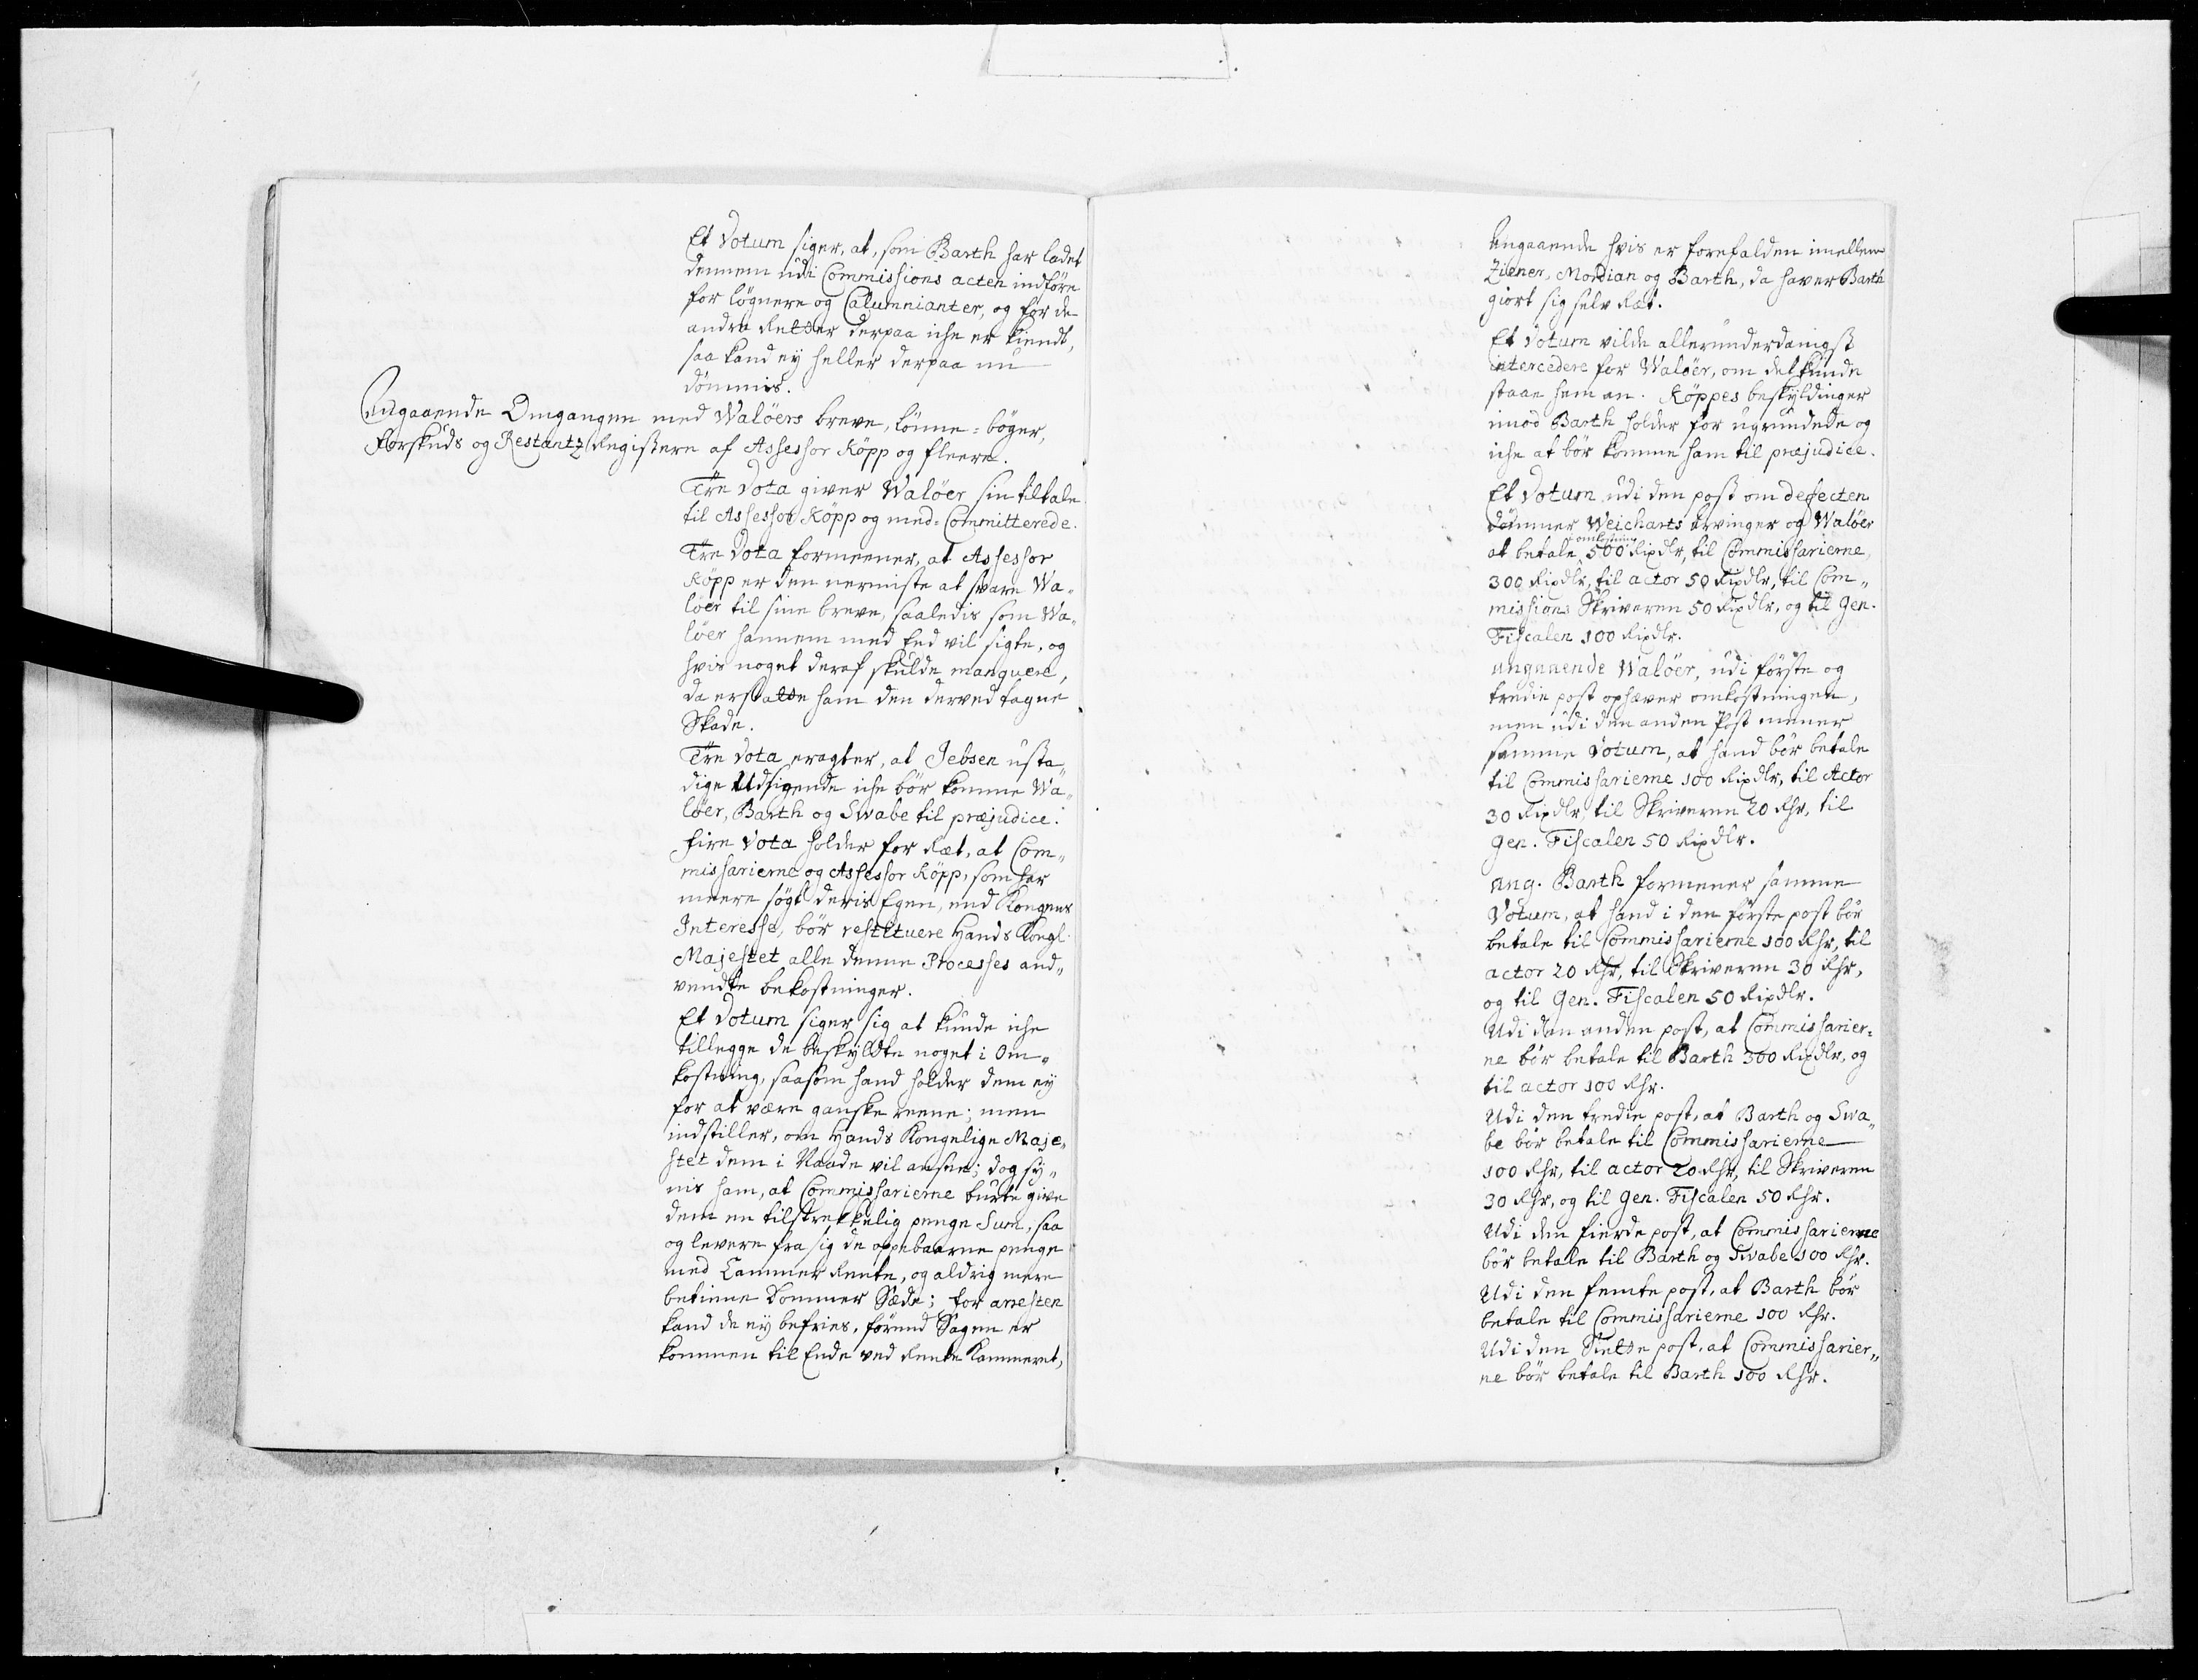 Et Votum siger, at, som Barth har ladet
dennem udi Commissions acten indføre
for løgnere og Calumnianter, og for de
andre Retter derpaa iche er kiendt,
saa kand ey heller derpaa nu
dømmis.
Angaaende Omgangen med Waløers breve, lønne-bøger,
Forskuds og Restantz Registere af Assessor Köpp og fleere.
Tre Vota giver Waløer sin tiltale
til Assessor Köpp og med-Committerede.
Tre Vota formeener, at Assessor
Köpp er den nermiste at svare Wa-
løer til sine breve, saaledis som Wa-
løer hannem med Eed vil sigte, og
hvis noget deraf skulde manquere,
da erstatte ham den derved tagne
Skade.
Tre Vota eragter, at Jebsen usta-
dige Udsigende iche bør komme Wa-
løer, Barth og Swabe til præjudice.
Fire Vota holder for Ræt, at Com-
missarierne og Assessor Köpp, som har
meere søgt deris Egen, end Kongens
Interesse, bør restituere Hands Kongl.
Majestet alle denne Processes and-
vendte bekostninger.
Et Votum siger sig at kunde iche
tillegge de beskyldte noget i Om-
kostning, saasom hand holder dem ey
for at være ganske reene; men
indstiller, om Hands Kongelige Maje-
stet dem i Naade vil ansee; dog sy-
nis ham, at Commissarierne burte give
dem en tilstrekkelig penge Sum, saa
og levere fra sig de oppebaarne penge
med Cammer Rente, og aldrig mere
betiene Dommer Sæde; for arresten
kand de ey befries, førend Sagen er
kommen til Ende ved Rente Kammeret,
Angaaende hvis er forefalden imellem
Zilener, Mordian og Barth, da haver Barth
giort sig selv Ræt.
Et Votum vilde allerunderdanigst
intercedere for Waløer, om det kunde
staae ham an. Köppes beskyldinger
imod Barth holder for ugrundede og
iche at bør komme ham til præjudice.
Et Votum udi den post om defecten
dømmer Weicharts arvinger og Waløer
at betale i omkostning 500 Rixdlr, til Commissarierne
300 Rixdlr, til actor 50 Rixdlr, til Com-
missions Skriveren 50 Rixdlr, og til Gen.
Fiscalen 100 Rixdlr.
angaaende Waløer, udi første og
tredie post ophæver omkostningen,
men udi den anden Post mener
samme Votum, at hand bør betale
til Commissarierne 100 Rixdlr, til Actor
30 Rixdlr, til Skriveren 20 Rhr, til
Gen. Fiscalen 50 Rixdlr.
ang. Barth formener samme
Votum, at hand i den første post bør
betale til Commissarierne 100 Rhr, til
actor 20 Rhr, til Skriveren 30 Rhr,
og til Gen. Fiscalen 50 Rixdlr.
Udi den anden post, at Commissarier-
ne bør betale til Barth 300 Rixdlr, og
til actor 100 Rhr.
Udi den tredie post, at Barth og Swa-
be bør betale til Commissarierne
100 Rhr, til actor 20 Rhr, til Skriveren
30 Rhr, og til Gen. Fiscalen 50 Rhr.
Udi den fierde post, at Commissarierne
bør betale til Barth og Swabe 100 Rhr.
Udi den femte post, at Barth bør
betale til Commissarierne 100 Rhr.
Udi den Siette post, at Commissarier-
ne bør betale til Barth 100 Rhr.